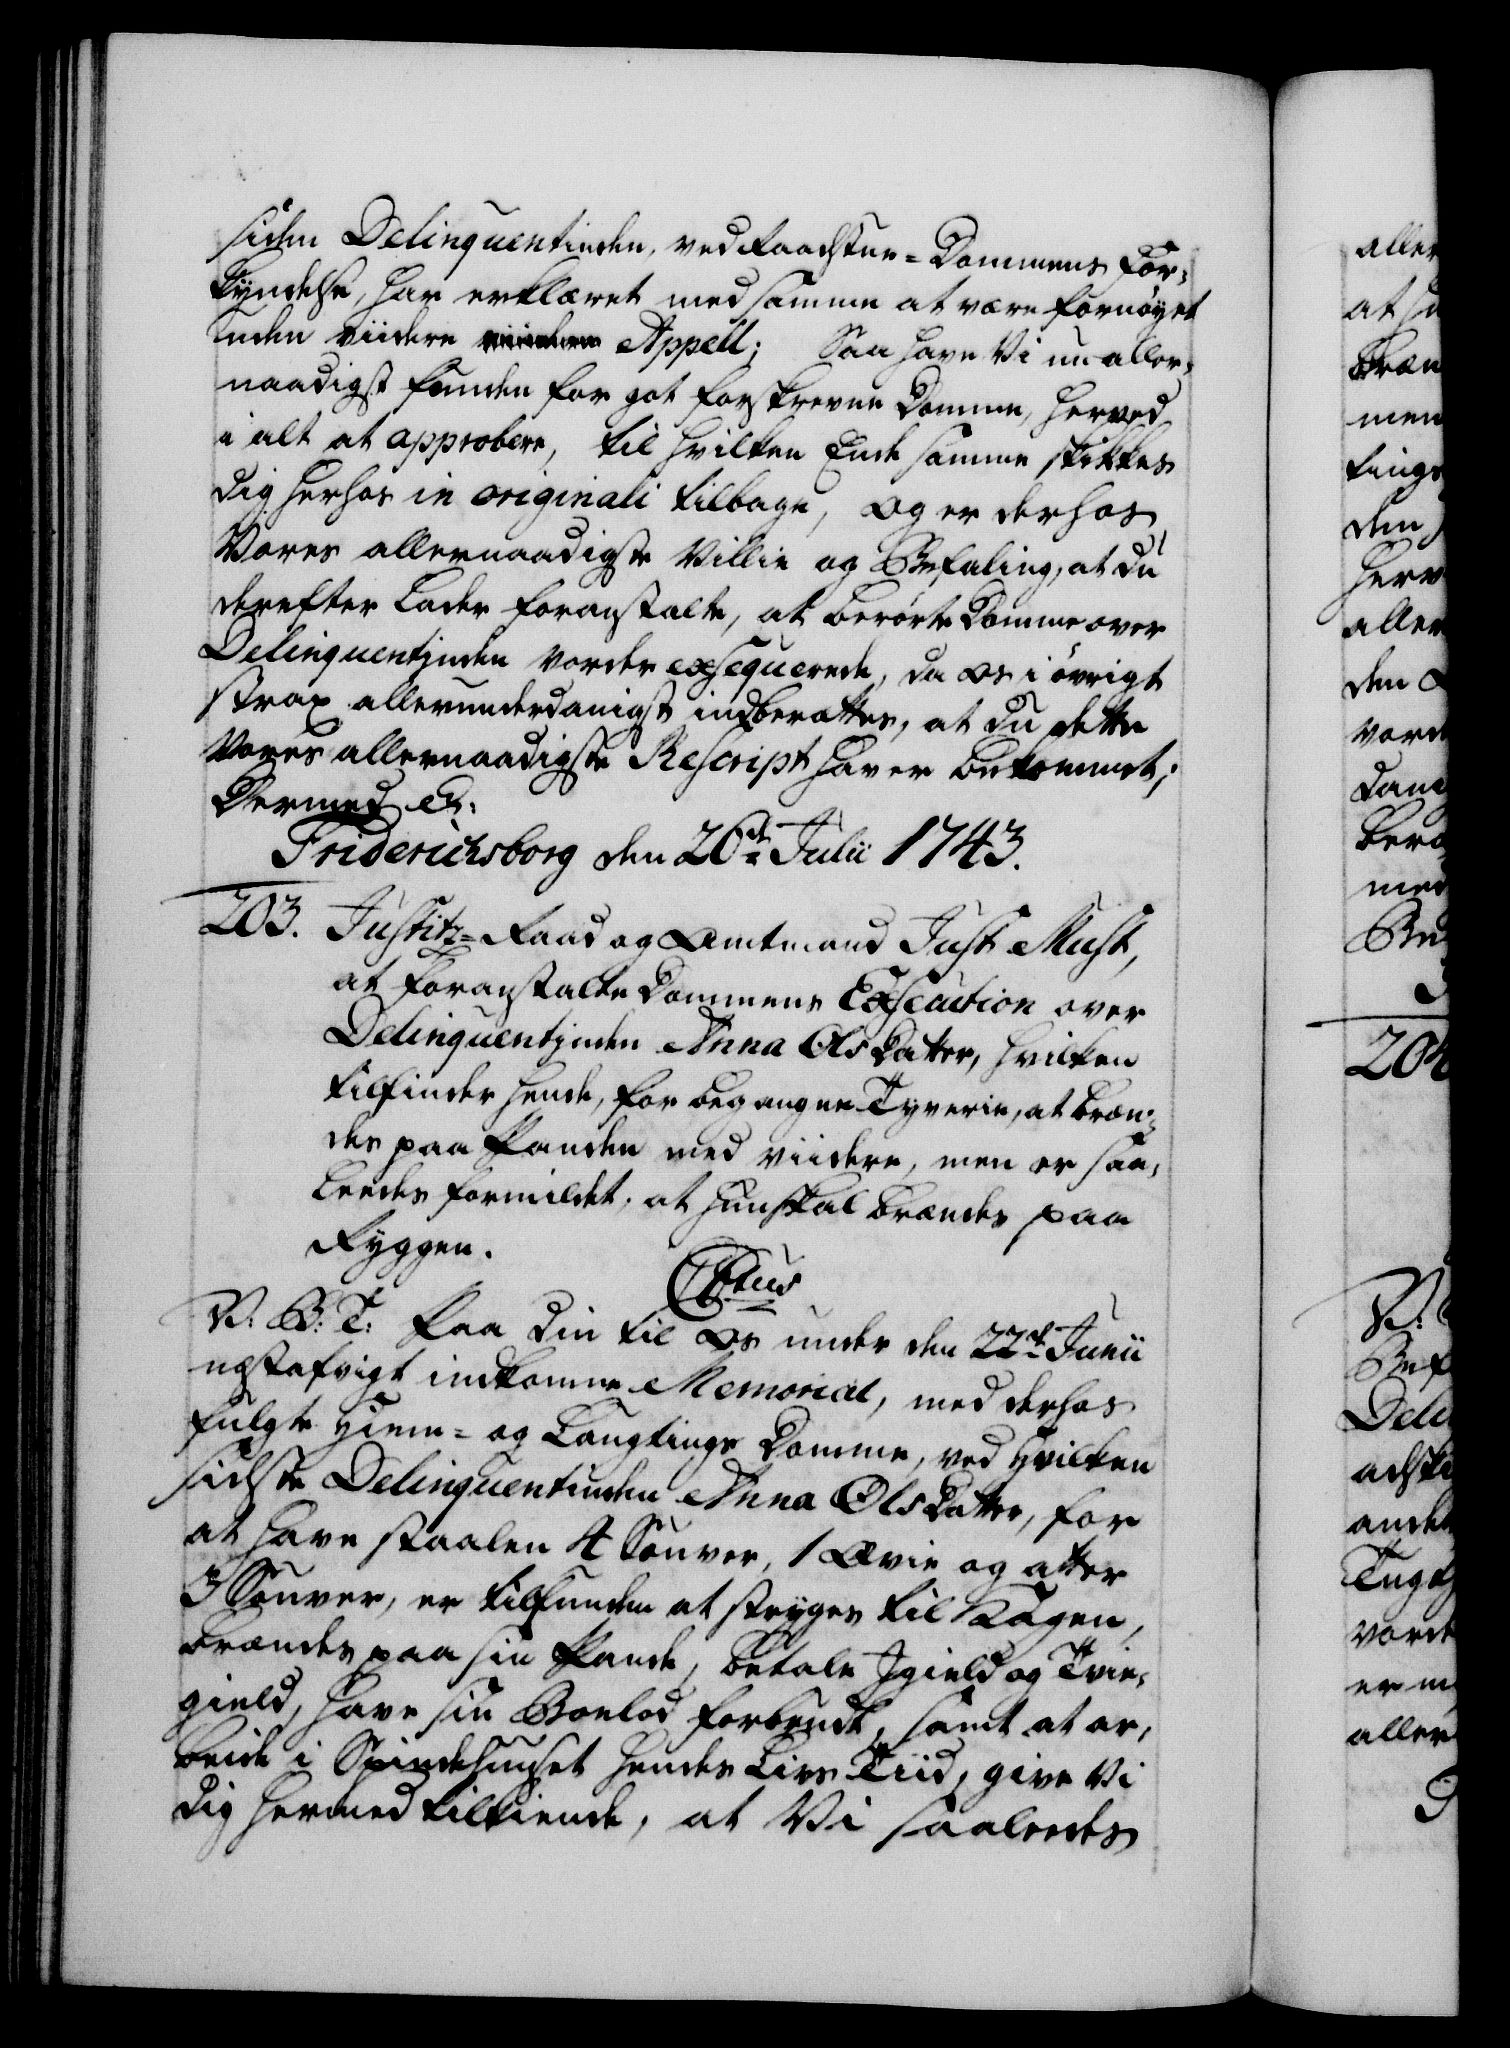 siden Delinquentinden, ved Raadstue-Dommens For-
kyndelse, har erklæret med samme at være fornøyet
uden viidere Appell; Saa have Vi nu aller-
naadigst funden for got forskrevne Domme, herved
i alt at approbere, til hvilken Ende samme skikkes
dig herhos in originali tilbage, og er derhos
Vores allernaadigste Villie og Befaling, at du
derefter lader foranstalte, at berørte Domme over
Delinquentinden vorder exsequerede, da os i øvrigt
strax allerunderdanigst indberettes, at du dette
Vores allernaadigste Rescript haver bekommet;
Dermed &.
Friderichsborg den 26de Julii 1743.
203. Justitz-Raad og Amtmand Just Must,
at foranstalte Dommens Exsecution over
Delinquentinden Anna Olsdatter, hvilken
tilfinder hende, for begangne Tyverie, at bræn-
des paa Panden med viidere, men er saa-
leedes formildet, at hun skal brændes paa
Ryggen.
V. G. T: Paa din til os under den 22de Junii
næstafvigt indkomne Memorial, med derhos
fulgte Hiem- og Laugtings Domme, ved hvilken
sidste Delinquentinden Anna Olsdatter, for
at have staalen 4 Souver, 1 Qvie og atter
3 Souver, er tilfunden at stryges til Kagen,
brændes paa sin Pande, betale Igield og Tvie-
gield, have sin Boelod forbrudt, samt at ar-
beide i Spindehuuset hendes Livs Tiid, give Vi
dig hermed tilkiende, at Vi saaleedes